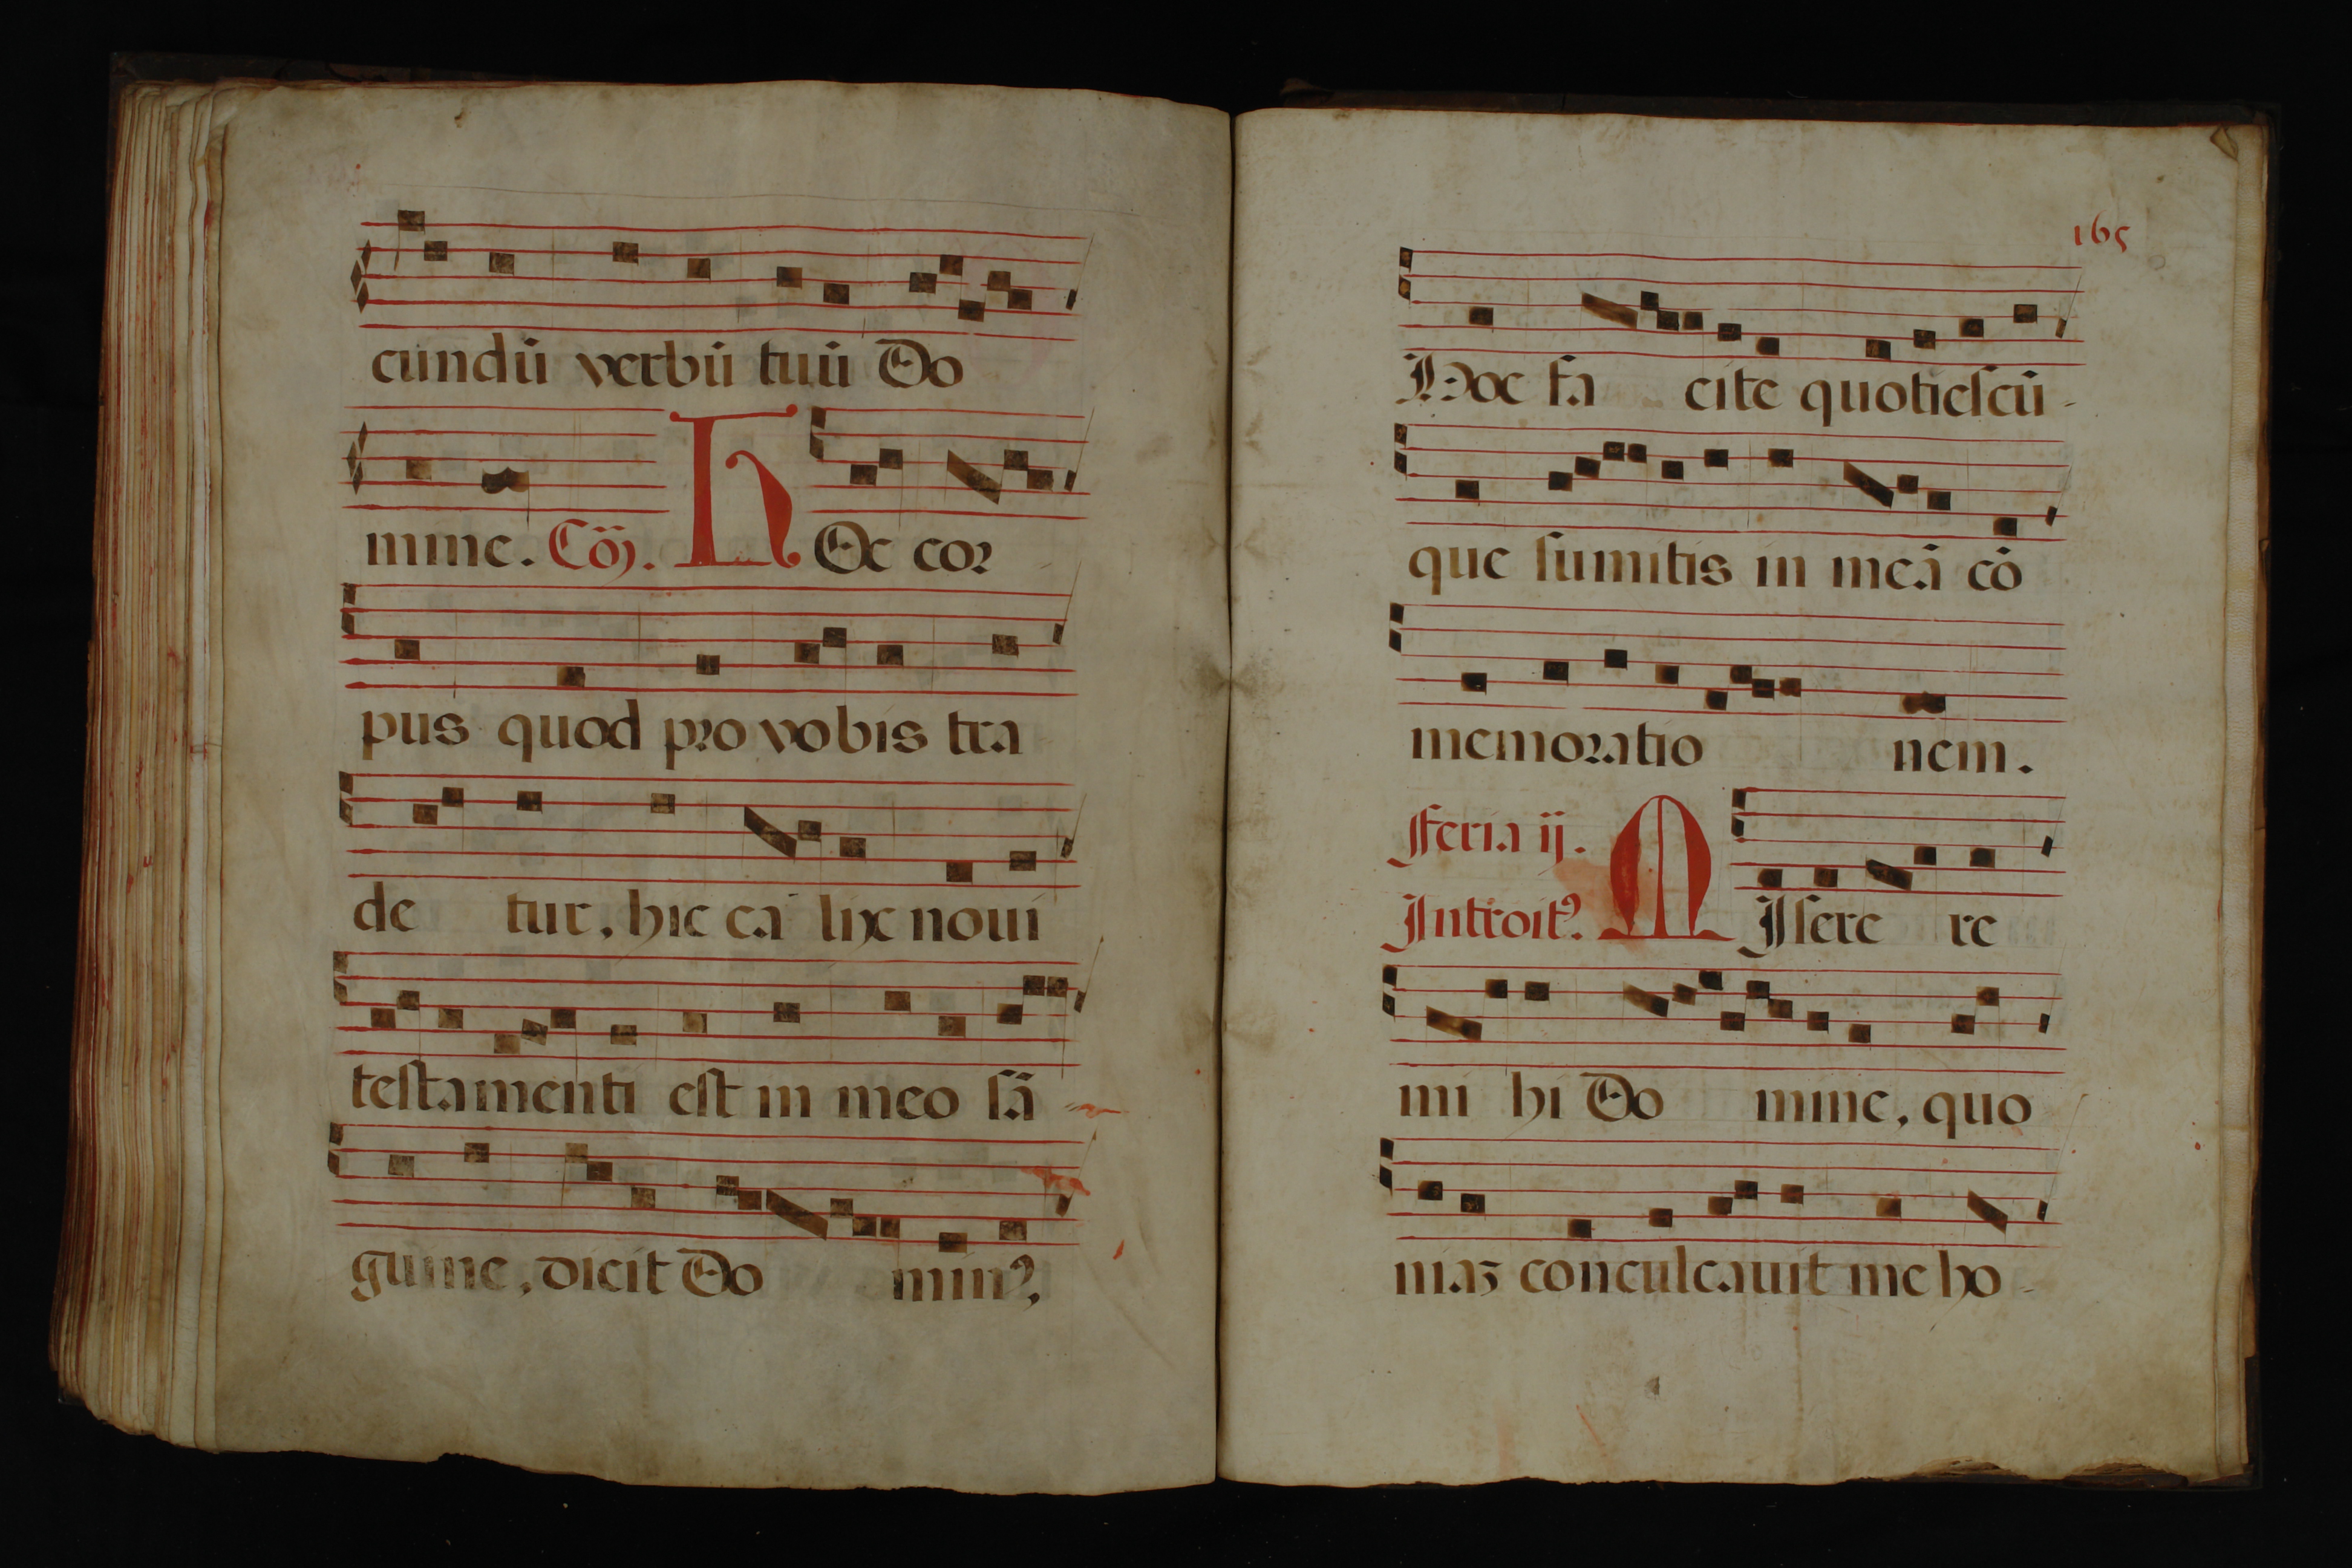 cundū verbū tuū Do
mine. Cōȝ. H Oc cor
pus quod pro vobis tra
de tur, hic ca lix noui
testamenti est in meo sā
guine, dicit Do minꝰ,
165
Hoc fa cite quotiescū-
que sumitis in meā cō
memoratio nem.
Feria ij.
Introitꝰ. M Isere re
mi hi Do mine, quo
niaȝ conculcauit me ho-